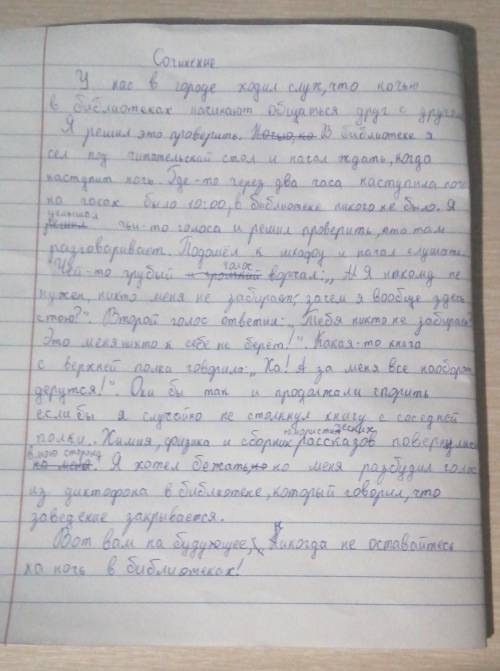 Сочинение
У нас в городе ходил слух, что ночью
в библиотеках начинают общаться друг с другом
Я решил это проверить. Ночью, но В библиотеке я
сел под читательский стол и начал ждать, когда
наступит ночь. Где-то через два часа наступила ночь
на часах было 10:00, в библиотеке никого не было. Я
услышал
решил чьи-то голоса и решил проверить, кто там
разговаривает. Подошёл к шкафу и начал слушать.
голос
Чей-то грубый и громкий ворчал: „А Я никому не
нужен, никто меня не забирает, зачем я вообще здесь
стою?". Второй голос ответил: „Тебя никто не забирает
Это меня никто к себе не берёт!". Какая-то книга
с верхней полки говорила: „Ха! А за меня все наоборот
дерутся!". Они бы так и продолжали спорить
если бы я случайно не столкнул книгу с соседней
юмористических
полки. Химия, физика и сборник рассказов повернулись
в мою сторону
ко мне. Я хотел бежать, но но меня разбудил голос
из диктофона в библиотеке, который говорил, что
заведение закрывается.
Вот вам на будующее, Никогда не оставайтесь
на ночь в библиотеках!